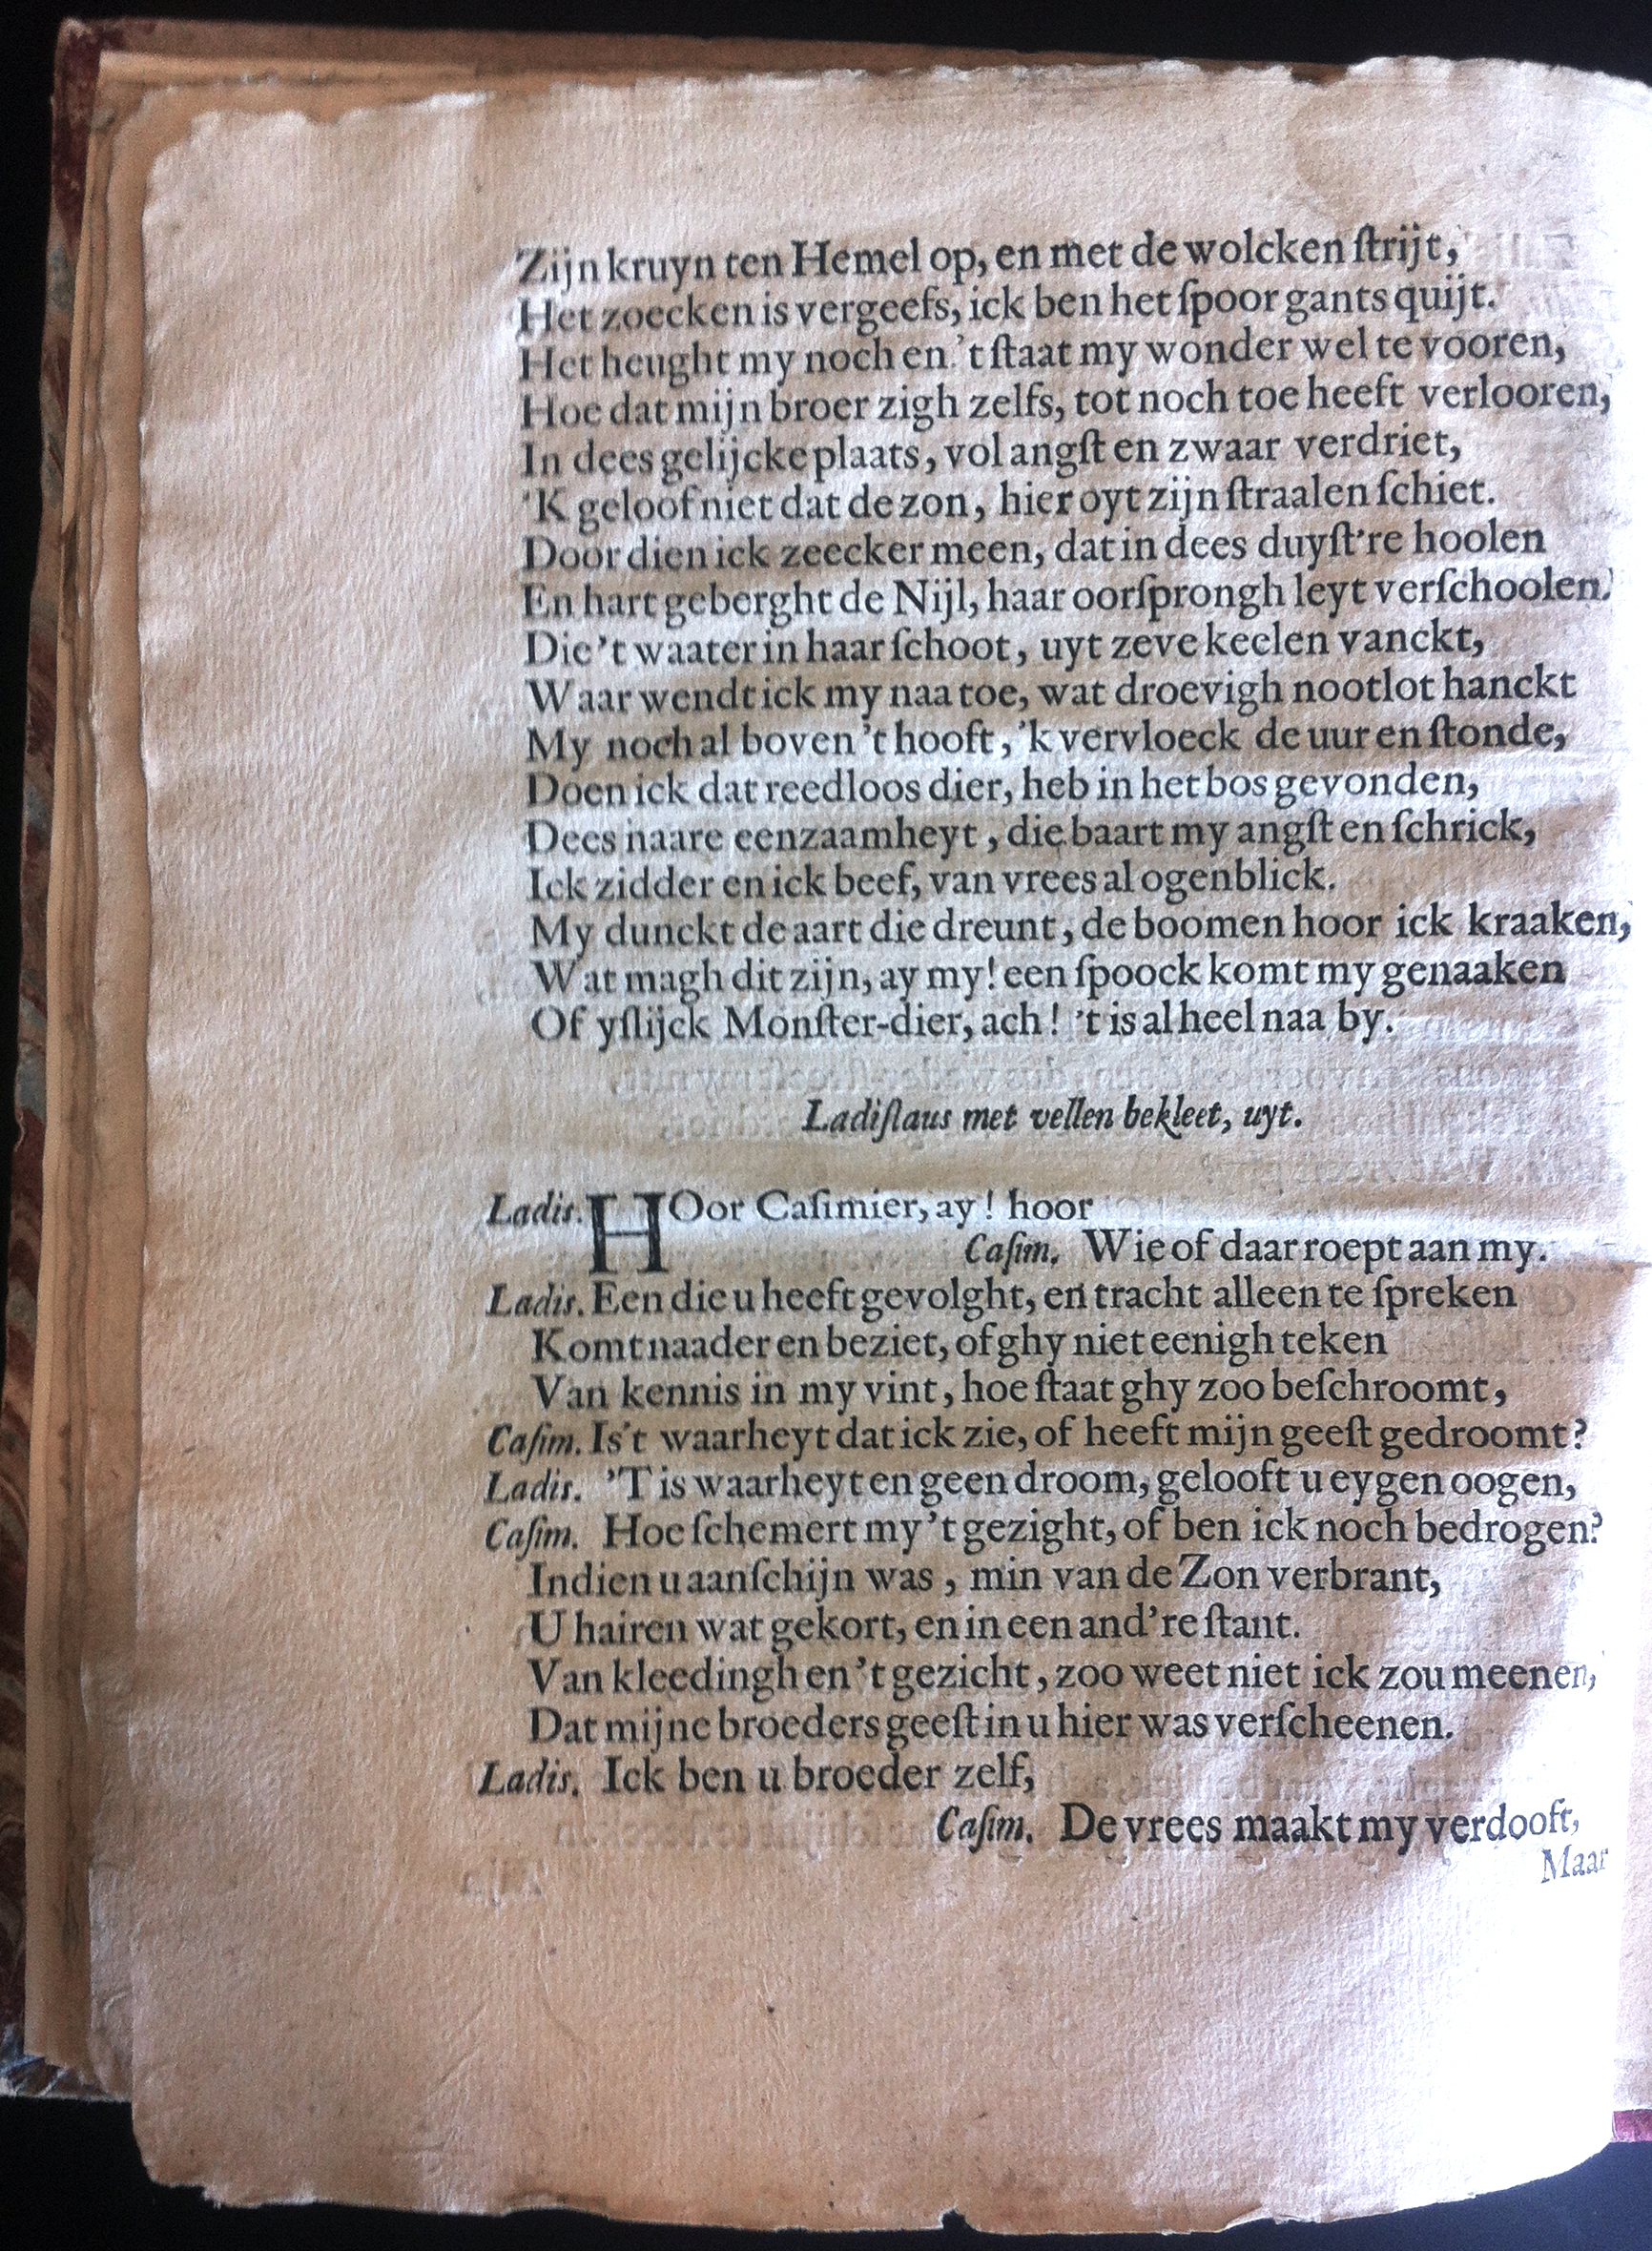 Zijn kruyn ten Hemel op, en met de wolcken ſtrijt,
Het zoecken is vergeefs, ick ben het ſpoor gants quijt.
Het heught my noch en 't ſtaat my wonder wel te vooren,
Hoe dat mijn broer zigh zelfs, tot noch toe heeft verlooren,
In dees gelijcke plaats, vol angſt en zwaar verdriet,
'K geloof niet dat de zon, hier oyt zijn ſtraalen ſchiet.
Door dien ick zeecker meen, dat in dees duyſt're hoolen
En hart geberght de Nijl, haar oorſprongh leyt verſchoolen.
Die 't waater in haar ſchoot, uyt zeve keelen vanckt,
Waar wendt ick my naa toe, wat droevigh nootlot hanckt
My noch al boven 't hooft, 'k vervloeck de uur en ſtonde,
Doen ick dat reedloos dier, heb in het bos gevonden,
Dees naare eenzaamheyt, die baart my angſt en ſchrick,
Ick zidder en ick beef, van vrees al ogenblick.
My dunckt de aart die dreunt, de boomen hoor ick kraaken,
Wat magh dit zijn, ay my! een ſpoock komt my genaaken
Of yſlijck Monſter-dier, ach! 't is al heel naa by.
Ladiſlaus met vellen bekleet, uyt.
Ladis. HOor Caſimier, ay! hoor
Caſim. Wie of daar roept aan my.
Ladis. Een die u heeft gevolght, en tracht alleen te ſpreken
Komt naader en beziet, of ghy niet eenigh teken
Van kennis in my vint, hoe ſtaat ghy zoo beſchroomt,
Caſim. Is't waarheyt dat ick zie, of heeft mijn geeſt gedroomt?
Ladis. 'T is waarheyt en geen droom, gelooft u eygen oogen,
Caſim. Hoe ſchemert my 't gezight, of ben ick noch bedrogen?
Indien u aanſchijn was, min van de Zon verbrant,
U hairen wat gekort, en in een and're ſtant.
Van kleedingh en 't gezicht, zoo weet niet ick zou meenen,
Dat mijne broeders geeſt in u hier was verſcheenen.
Ladis. Ick ben u broeder zelf,
Caſim. De vrees maakt my verdooft,
Maar